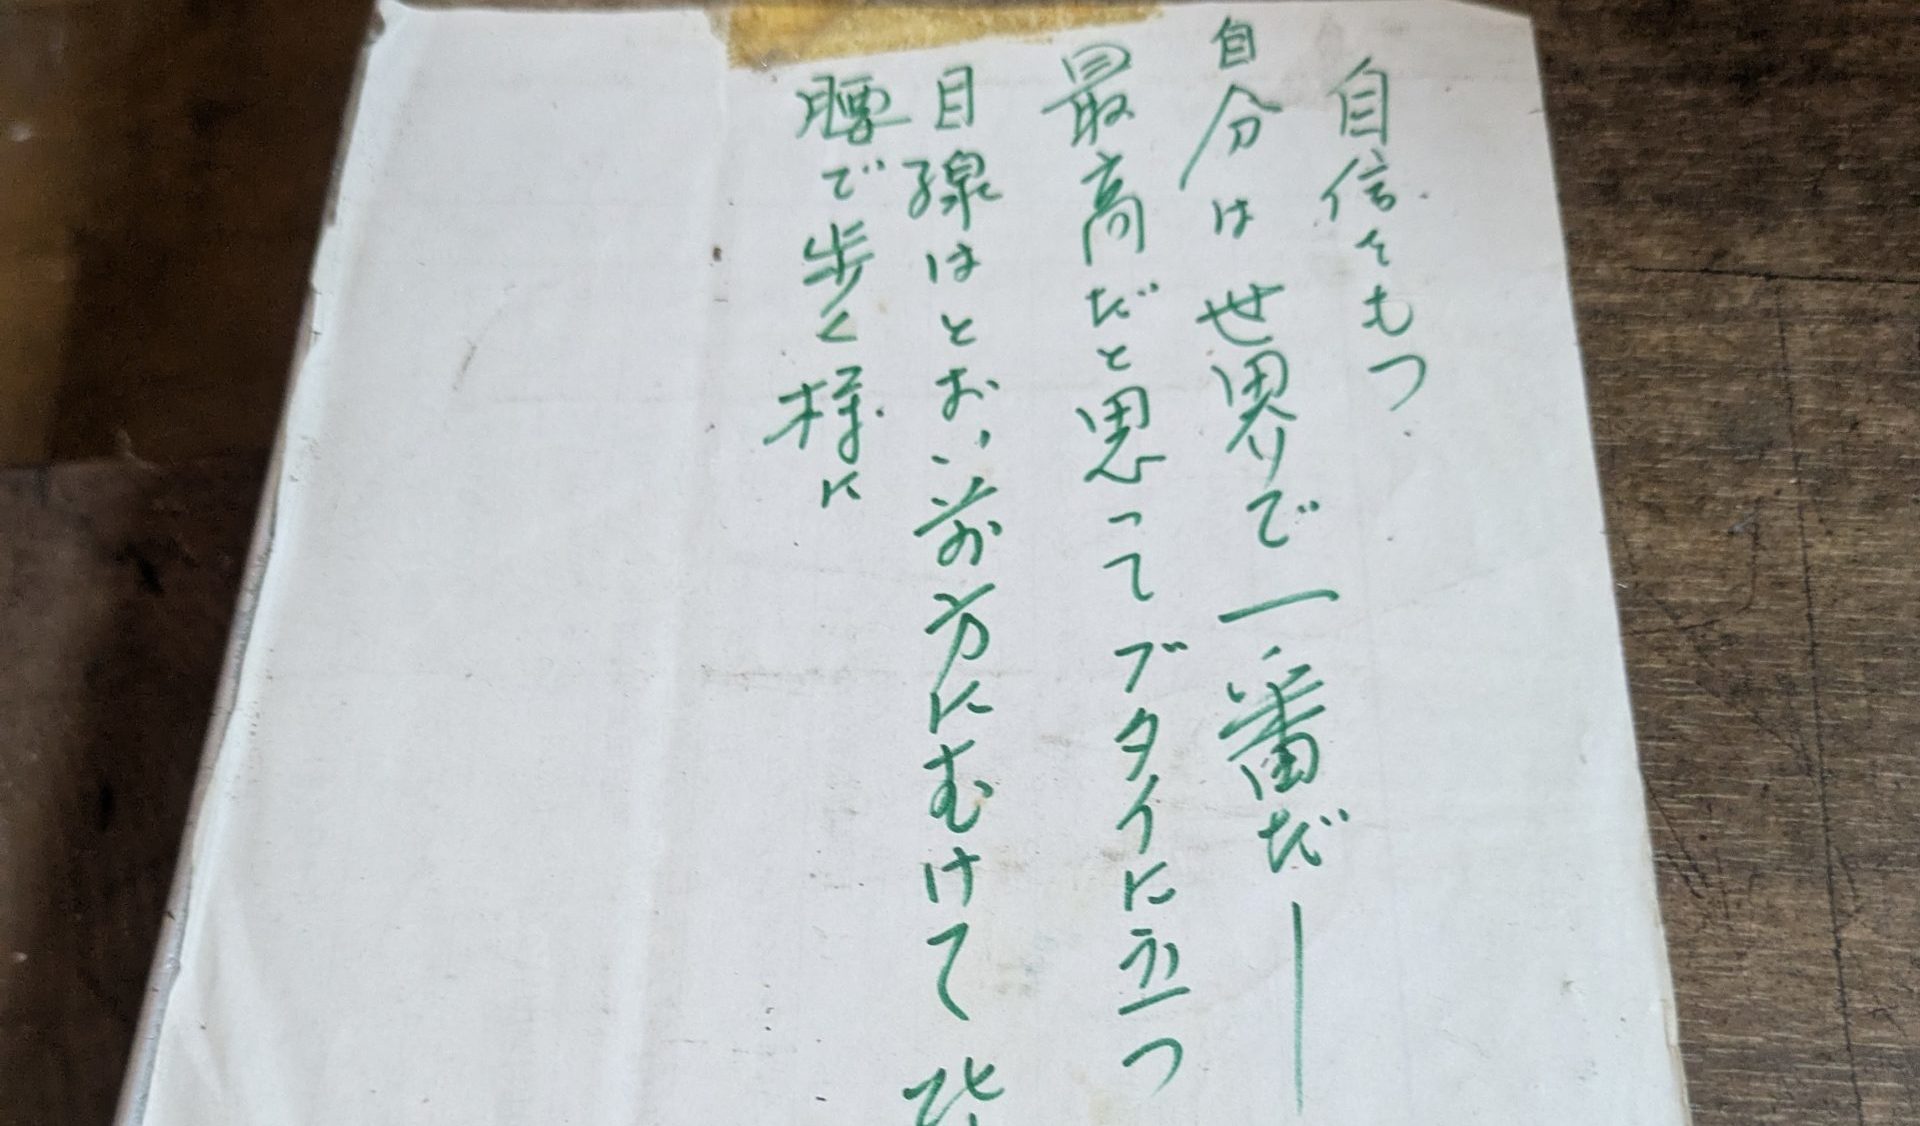 自信をもつ
自分は世界で一番だー
最高だと思ってブタイに立つ
目線はとおい前方にむけて
腰で歩く様に